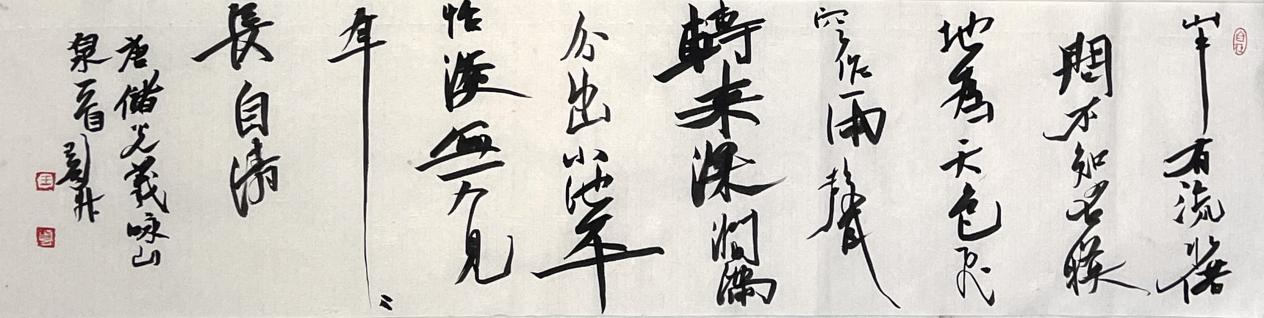 山中有流水借
問不知名映
地為天色飛
空作雨聲
轉来深澗滿
分出小池平
恬淡無人見
年〻
長自清
唐儲光羲咏山
泉一首